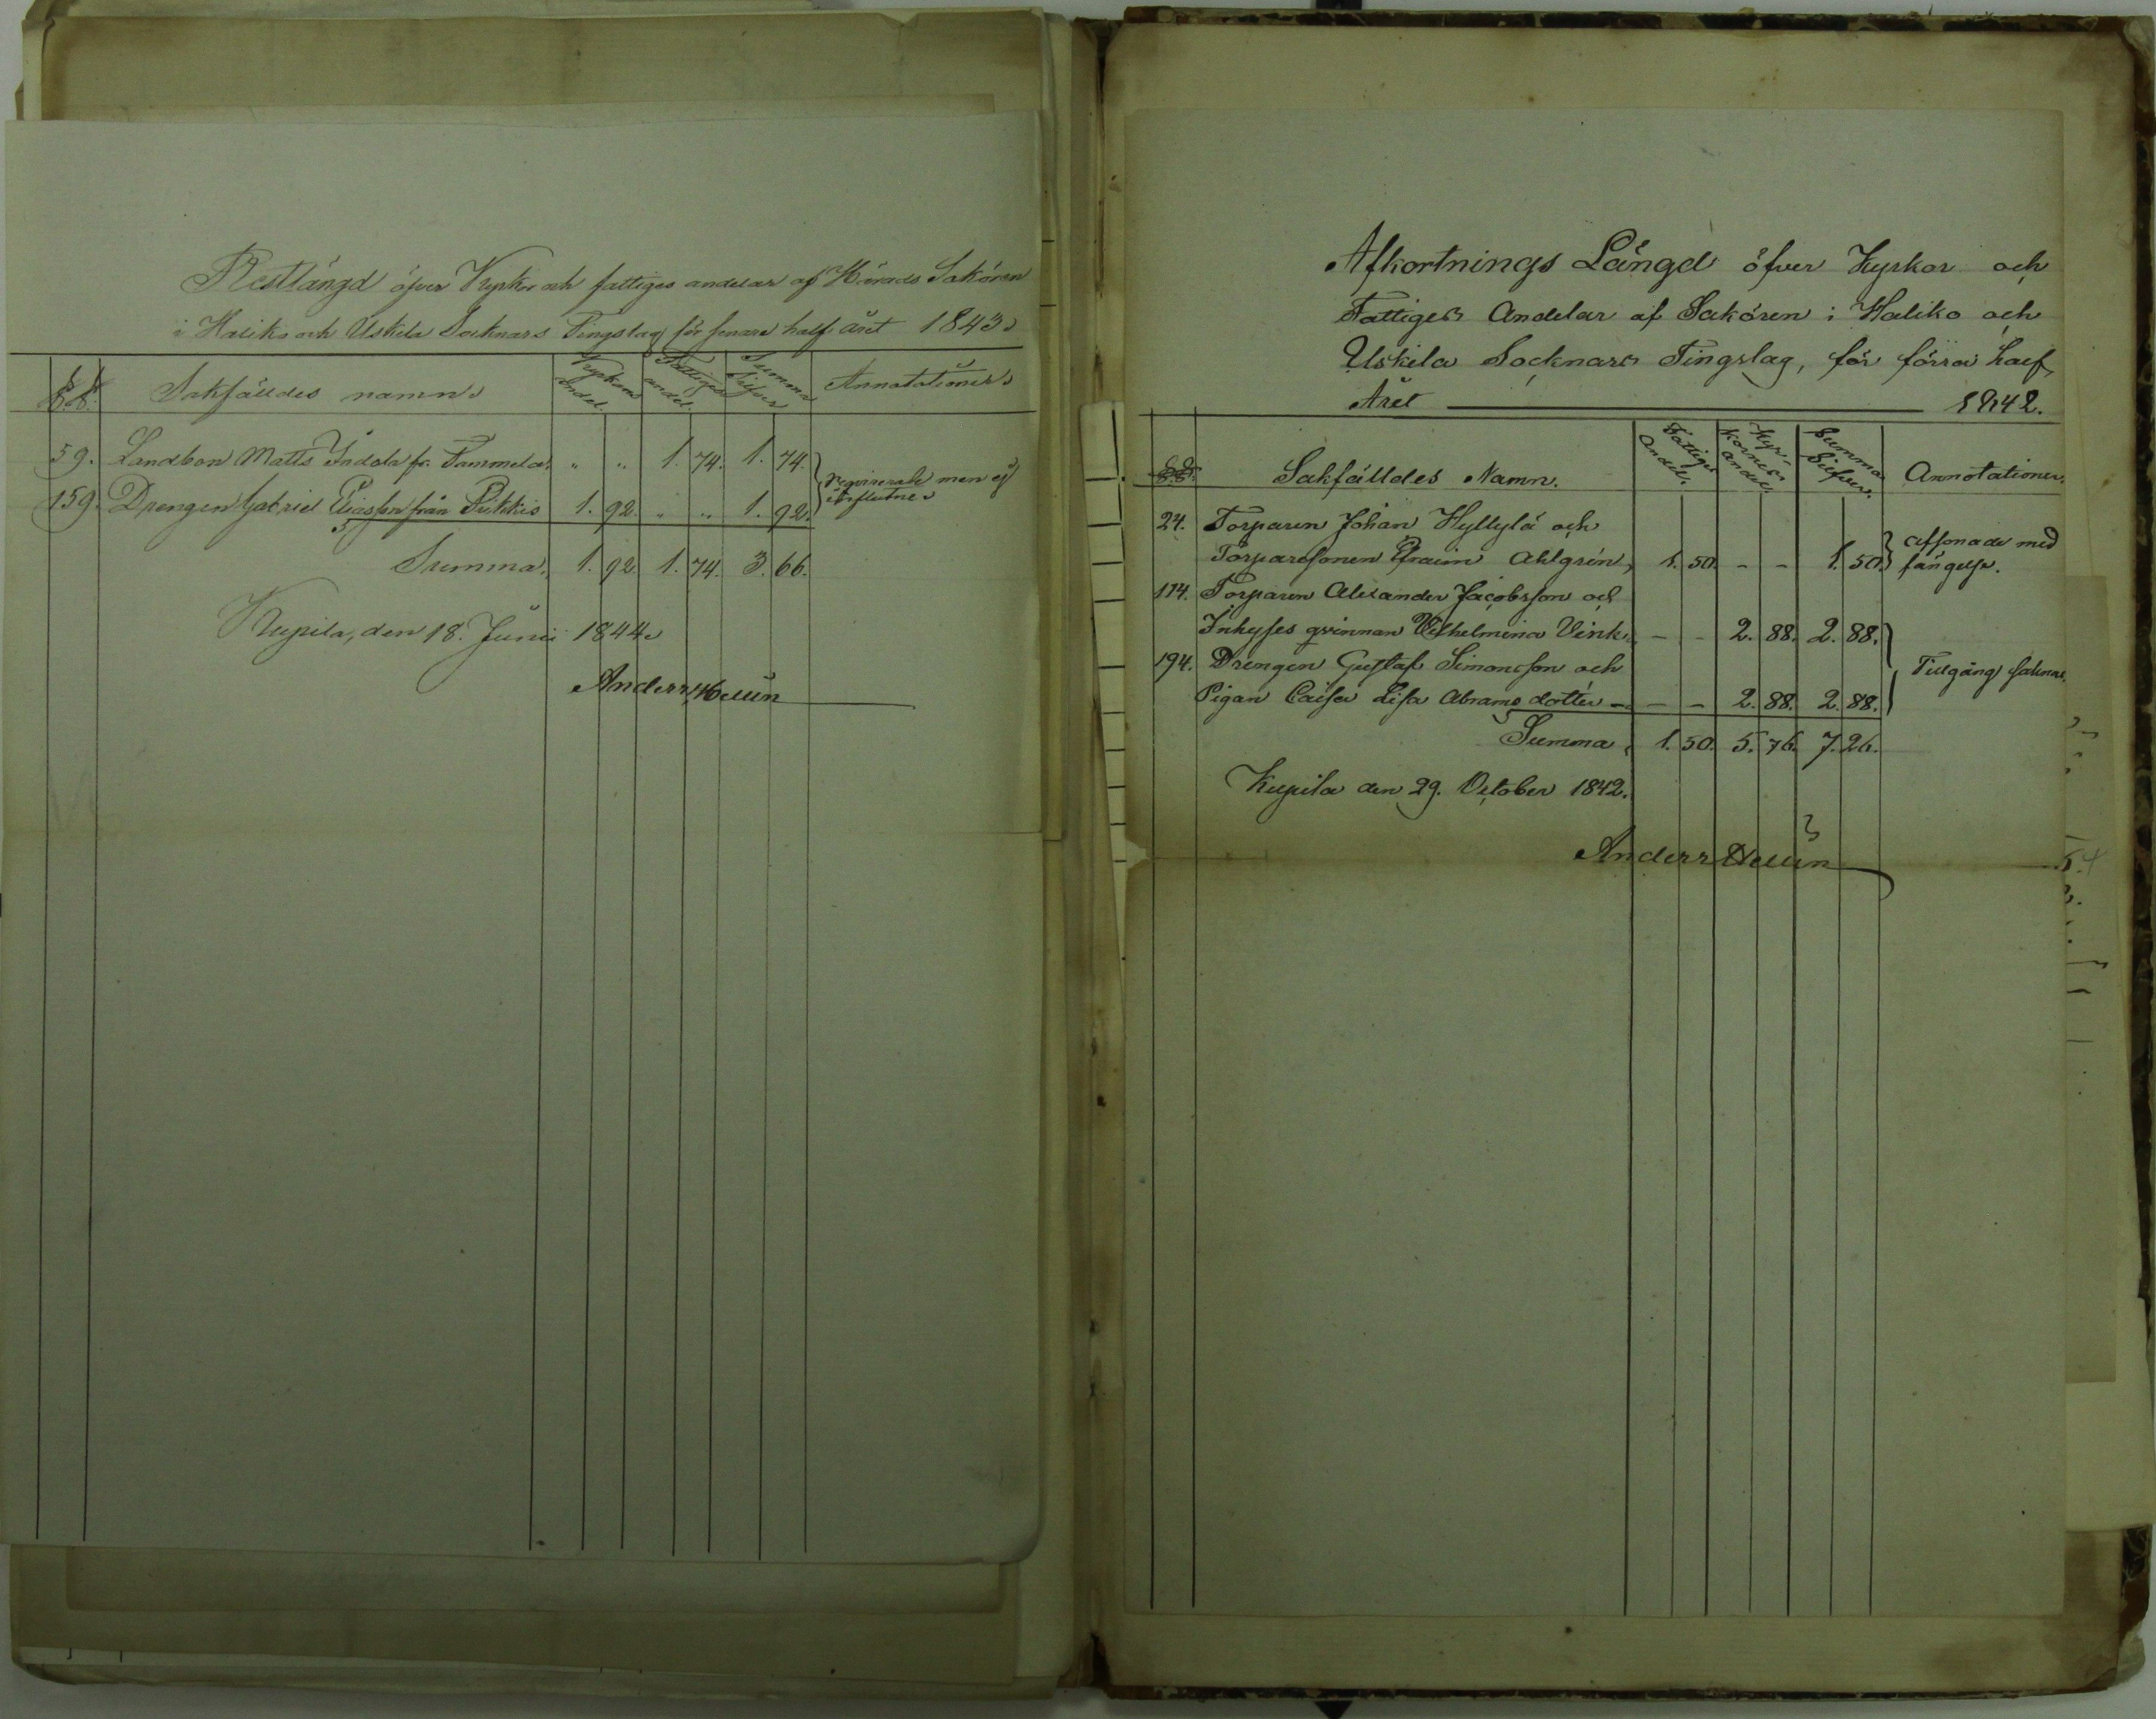 Restlängd öfver Kyrkor och fattiges andelar af Härads Saköron
i Haliko och Uskela Socknars Tingslag för senare half året 1843.
§.§. Sakfälldes namn. Kyrkans andel. Fattiges andel. Summa Silfver Annotationer.
59. Landbon Matts Indola fr. Tammela. " " 1. 74. 1. 74.
159. Drengen Gabriel Eliasson från Pikkis 1. 92. " " 1. 92. reqvirerade men ej influtne.
Summa. 1. 92. 1. 74. 3. 66.
Kupila, den 18. Junii 1844.
Anders Helin
Afkortnings Längd öfver Kyrkor och
Fattiges Andelar af Saköron i Haliko och
Uskela Socknars Tingslag, för förra half
Året 1842.
§.§. Sakfälldes Namn. Fattiges Andel. Kyrkornes andel. Summa Silfver. Annotationer.
24. Torparen Johan Hyllylä och
Torparesonen Efraim Ahlgrén, 1. 50. - - 1. 50. afsonade med fängelse.
114. Torparen Alexander Jacobsson och
Inhyses qvinnan Wilhelmina Vink. - - 2. 88. 2. 88.
194. Drengen Gustaf Simonsson och
Pigan Caisa Lisa Abrams dotter - - - 2. 88. 2. 88. Tillgång saknas.
Summa, 1. 50. 5. 76. 7. 26.
Kupila den 29. October 1842.
Anders Helin